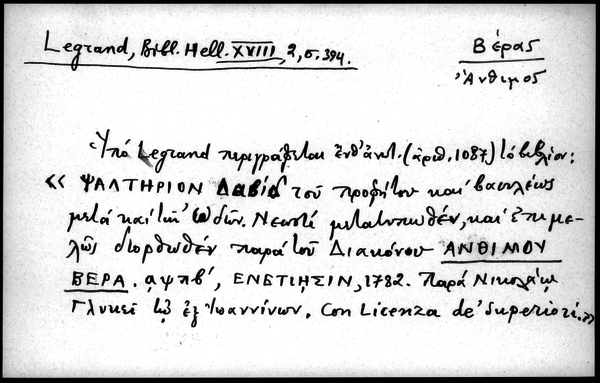 Legrand, Bibl. Hell. XVIII, 2, σ. 394.
Βέρας
Ἄνθιμος
Ὑπὸ Legrand περιγράφεται ἐνθ' ἀνωτ. (ἀριθ. 1087) τὸ βιβλίον:
« ΨΑΛΤΗΡΙΟΝ Δαβὶδ τοῦ προφήτου καὶ βασιλέως
μετὰ καὶ τῶν ᾠδῶν. Νεωστὶ μετατυπωθέν, καὶ ἐπιμε-
λῶς διορθωθὲν παρὰ τοῦ Διακόνου ΑΝΘΙΜΟΥ
ΒΕΡΑ. ͵αψπβ', ΕΝΕΤΙΗΣΙΝ, 1782. Παρὰ Νικολάῳ
Γλυκεῖ τῷ ἐξ Ἰωαννίνων. Con Licenza de' Superiori. »